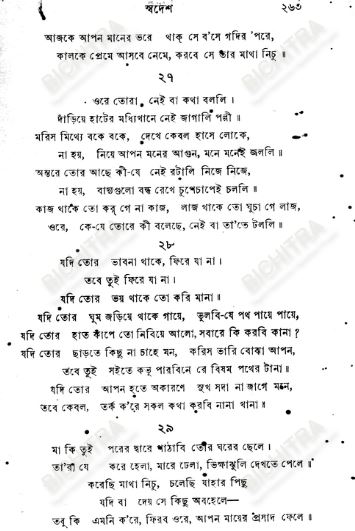 স্বদেশ ২৬৩
আজকে আপন মানের ভরে থাক্ সে ব'সে গদির 'পরে,
কালকে প্রেমে আসবে নেমে, করবে সে তার মাথা নিচু ॥
২৭
ওরে তোরা নেই বা কথা বললি।
দাঁড়িয়ে হাটের মধ্যিখানে নেই জাগালি পল্লী ॥
মরিস মিথ্যে বকে বকে, দেখে কেবল হাসে লোকে,
না হয়, নিয়ে আপন মনের আগুন, মনে মনেই জ্বললি ॥
অন্তরে তোর আছে কী-যে নেই রটালি নিজে নিজে,
না হয়, বাদ্যগুলো বন্ধ রেখে চুপেচাপেই চললি ॥
কাজ থাকে তো কর্ গে না কাজ, লাজ থাকে তো ঘুচা গে লাজ,
ওরে, কে-যে তোরে কী বলেছে, নেই বা তা'তে টললি ॥
২৮
যদি তোর ভাবনা থাকে, ফিরে যা না।
তবে তুই ফিরে যা না।
যদি তোর ভয় থাকে তো করি মানা ॥
যদি তোর ঘুম জড়িয়ে থাকে গায়ে, ভুলবি-যে পথ পায়ে পায়ে,
যদি তোর হাত কাঁপে তো নিবিয়ে আলো, সবারে কি করবি কানা ?
যদি তোর ছাড়তে কিছু না চাহে মন, করিস ভারি বোঝা আপন,
তবে তুই সইতে কভু পারবিনে রে বিষম পথের টানা ॥
যদি তোর আপন হতে অকারণে সুখ সদা না জাগে মনে,
তবে কেবল, তর্ক ক'রে সকল কথা করবি নানা খানা ॥
২৯
মা কি তুই পরের দ্বারে পাঠাবি তোর ঘরের ছেলে।
তা'রা যে করে হেলা, মারে ঢেলা, ভিক্ষাঝুলি দেখতে পেলে ॥
করেছি মাথা নিচু, চলেছি যাহার পিছু
যদি বা দেয় সে কিছু অবহেলে—
তবু কি এমনি ক'রে, ফিরব ওরে, আপন মায়ের প্রসাদ ফেলে ॥